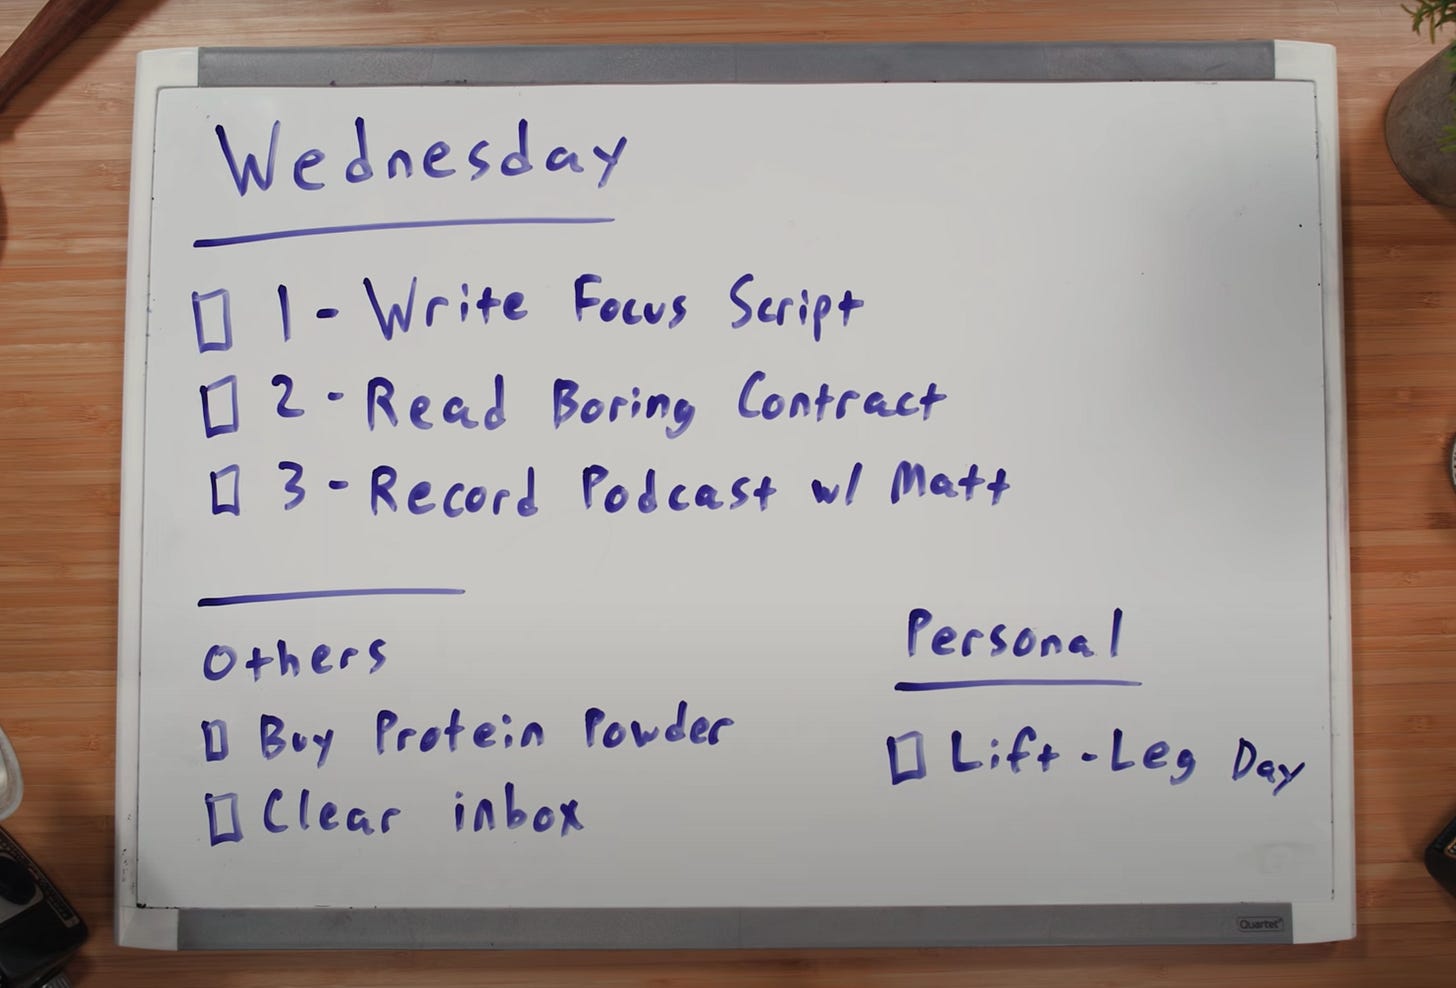 Wednesday
1 - Write Focus Script
2 - Read Boring Contract
3 - Record Podcast w/ Matt
Others
Buy Protein Powder
Clear inbox
Personal
Lift - Leg Day
Quartet